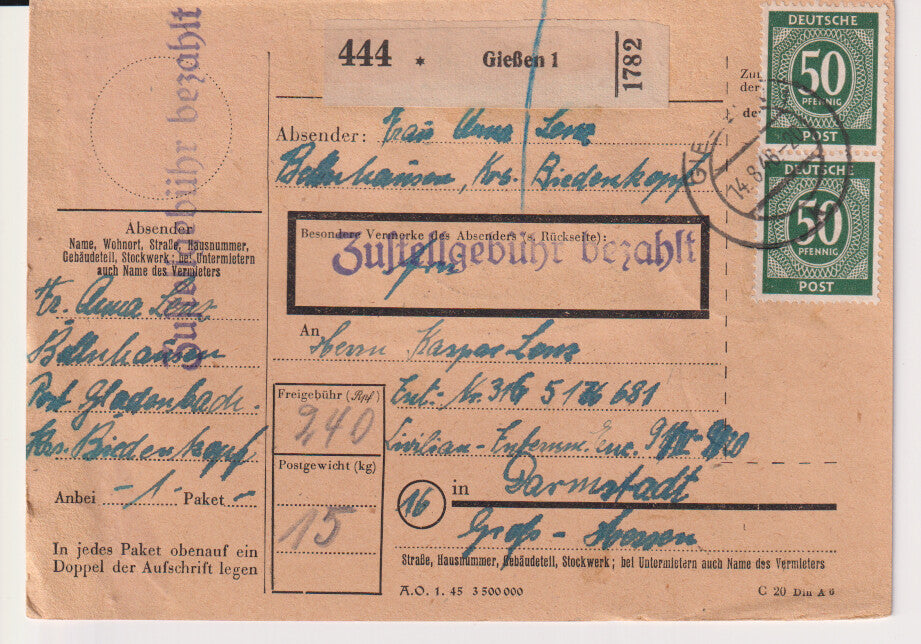 Zustellgebühr bezahlt
444 * Gießen 1 1782
DEUTSCHE
50
PFENNIG
POST
DEUTSCHE
50
PFENNIG
POST
14.8.46
Absender: Frau Anna Lenz
Bellnhausen, Krs. Biedenkopf
Besondere Vermerke des Absenders (s. Rückseite):
Zustellgebühr bezahlt
An Herrn Kaspar Lenz
Int. Nr. 316 5136681
Civilian-Internm. Enc.
in Darmstadt
16
Groß-Hessen
Straße, Hausnummer, Gebäudeteil, Stockwerk; bei Untermietern auch Name des Vermieters
Absender
Name, Wohnort, Straße, Hausnummer,
Gebäudeteil, Stockwerk; bei Untermietern
auch Name des Vermieters
Fr. Anna Lenz
Bellnhausen
Post Gladenbach.
Krs. Biedenkopf
Anbei -1- Paket -
In jedes Paket obenauf ein
Doppel der Aufschrift legen
Freigebühr (Rpf)
240
Postgewicht (kg)
15
A.O. 1. 45 3 500 000
C 20 Din A 6